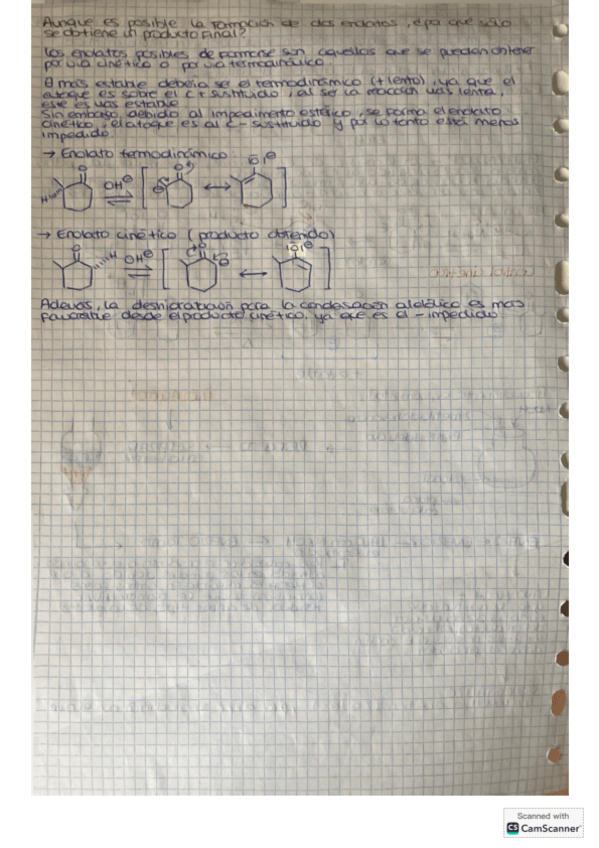 Aunque es posible la formación de dos enolatos, ¿por qué sólo
se obtiene un producto final?
Los enolatos posibles de formarse son aquellos que se pueden obtener
por vía cinética o por vía termodinámico.
El más estable debería se el termodinámico (+ lento), ya que el
ataque es sobre el C + sustituido, al ser la reacción más lenta,
este es más estable
Sin embargo, debido al impedimento estérico, se forma el enolato
cinético, el ataque es al C - sustituido y por lo tanto está menos
impedido.
→ Enolato termodinámico
O
H
OH⊖
O
|O|⊖
→ Enolato cinético (producto obtenido)
O
H
OH⊖
O
|O|⊖
Además, la deshidratación para la condensación aldólica es más
favorable desde el producto cinético, ya que es el - impedido
Scanned with
CS CamScanner